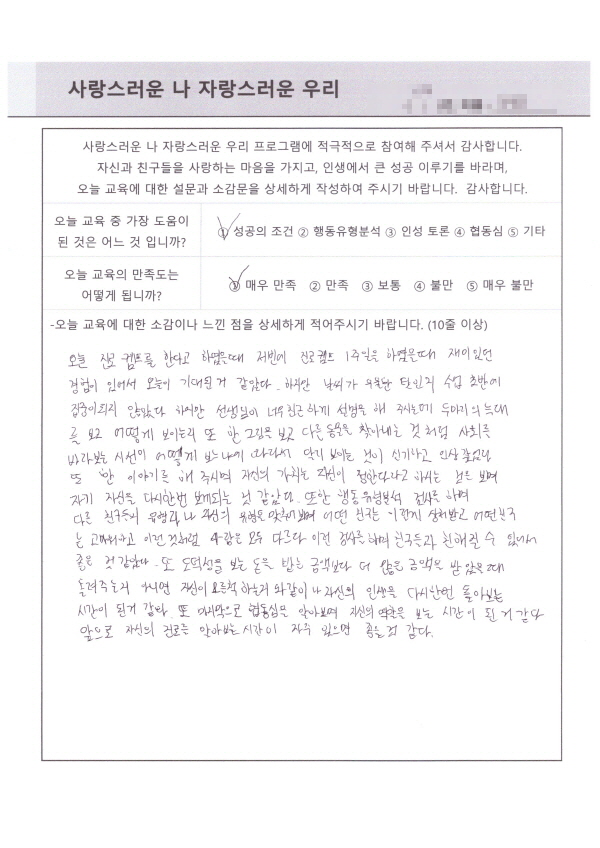 사랑스러운 나 자랑스러운 우리
사랑스러운 나 자랑스러운 우리 프로그램에 적극적으로 참여해 주셔서 감사합니다.
자신과 친구들을 사랑하는 마음을 가지고, 인생에서 큰 성공 이루기를 바라며,
오늘 교육에 대한 설문과 소감문을 상세하게 작성하여 주시기 바랍니다. 감사합니다.
오늘 교육 중 가장 도움이
된 것은 어느 것 입니까?
① 성공의 조건 ② 행동유형분석 ③ 인성 토론 ④ 협동심 ⑤ 기타
오늘 교육의 만족도는
어떻게 됩니까?
① 매우 만족 ② 만족 ③ 보통 ④ 불만 ⑤ 매우 불만
-오늘 교육에 대한 소감이나 느낀 점을 상세하게 적어주시기 바랍니다. (10줄 이상)
오늘 진로 캠프를 한다고 하였을때 저번에 진로캠프 1주일을 하였을때 재미있던
경험이 있어서 오늘이 기대된거 같았다. 하지만 날씨가 탓인지 수업 초반에
집중이되지 않았다 하지만 선생님이 너무친근하게 설명을 해 주시는데 두마리의 늑대
를 보고 어떻게 보이는지 또 한 그림을 보고 다른 동물을 찾아내는 것처럼 사회를
바라보는 시선이 어떻게 보느냐에 따라서 달리 보이는 것이 신기하고 인상 깊었다
또 한 이야기를 해 주시며 자신의 가치는 자신이 정한다라고 하시는 것을 보며
자기 자신을 다시한번 보게되는 것 같았다. 또한 행동유형분석 검사를 하며
다른 친구들의 유형과 나 자신의 유형을 맞추어보며 어떤 친구는 어떤친구
는 이런 것처럼 사람은 모두 다르다 이런 검사를 하며 친구들과 친해질 수 있어서
좋은 것 같았다. 또 도덕성을 보는 돈을 받는 금액보다 더 많은 금액을 받았을때
돌려주는지 아니면 자신이 하는지 와같이 나 자신의 인생을 다시한번 돌아보는
시간이 된거 같다. 또 마지막으로 협동심을 알아보며 자신의 역할을 보는 시간이 된 거 같다
앞으로 자신의 진로를 알아보는 시간이 자주 있으면 좋을 것 같다.